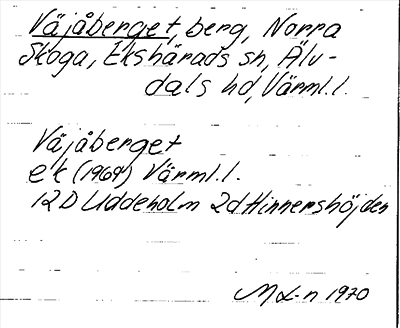 Väjåberget, berg, Norra
Skoga, Ekshärads sn, Älv-
dals hd, Värml.l.
Väjåberget
ek (1969) Värml.l.
12D Uddeholm 2d Hinnershöjden
M L-n 1970